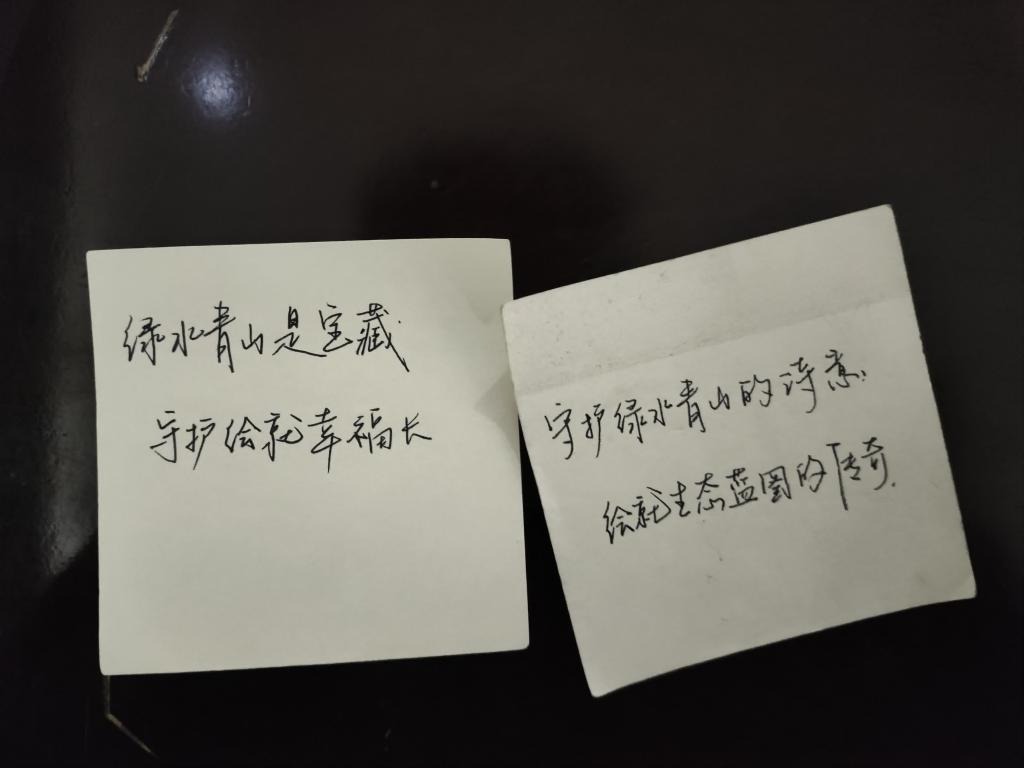 绿水青山是宝藏
守护绘就幸福长
守护绿水青山的诗意.
绘就生态蓝图的传奇.